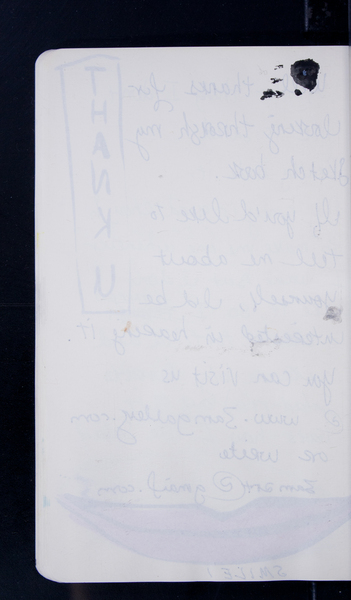 THANK U
thanks for
looking through my
sketch book.
If you'd like to
tell me about
yourself, I'd be
interested in hearing it
You can visit us
@ www.3amgallery.com
or write
@gmail.com
SMILE!